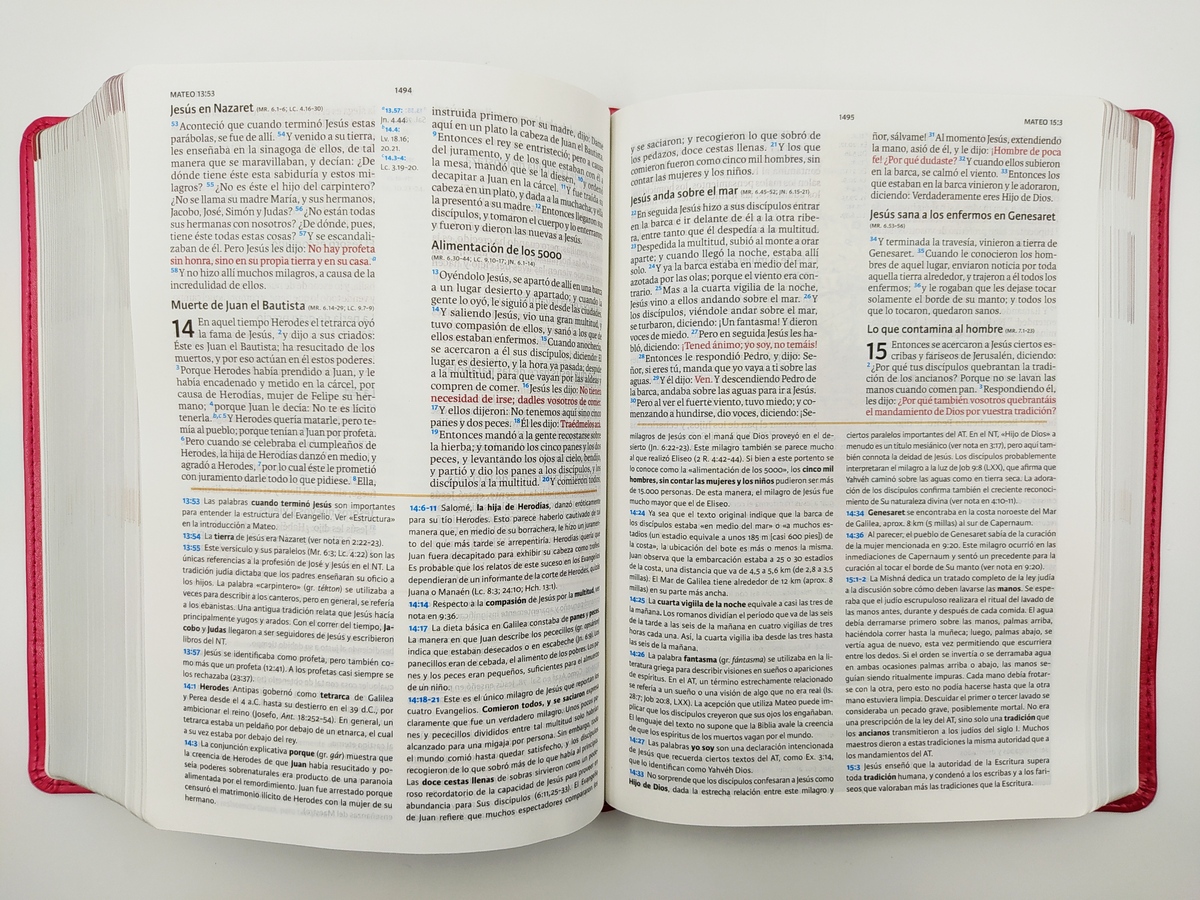 MATEO 13:53
1494
Jesús en Nazaret (MR. 6.1-6; LC. 4.16-30)
53 Aconteció que cuando terminó Jesús estas
parábolas, se fue de allí. 54 Y venido a su tierra,
les enseñaba en la sinagoga de ellos, de tal
manera que se maravillaban, y decían: ¿De
dónde tiene éste esta sabiduría y estos mi-
lagros? 55 ¿No es éste el hijo del carpintero?
¿No se llama su madre María, y sus hermanos,
Jacobo, José, Simón y Judas? 56 ¿No están todas
sus hermanas con nosotros? ¿De dónde, pues,
tiene éste todas estas cosas? 57 Y se escandali-
zaban de él. Pero Jesús les dijo: No hay profeta
sin honra, sino en su propia tierra y en su casa. a
58 Y no hizo allí muchos milagros, a causa de la
incredulidad de ellos.
Muerte de Juan el Bautista (MR. 6.14-29; LC. 9.7-9)
14 En aquel tiempo Herodes el tetrarca oyó
la fama de Jesús, 2 y dijo a sus criados:
Éste es Juan el Bautista; ha resucitado de los
muertos, y por eso actúan en él estos poderes.
3 Porque Herodes había prendido a Juan, y le
había encadenado y metido en la cárcel, por
causa de Herodías, mujer de Felipe su her-
mano; 4 porque Juan le decía: No te es lícito
tenerla. b,c 5 Y Herodes quería matarle, pero te-
mía al pueblo; porque tenían a Juan por profeta.
6 Pero cuando se celebraba el cumpleaños de
Herodes, la hija de Herodías danzó en medio, y
agradó a Herodes, 7 por lo cual éste le prometió
con juramento darle todo lo que pidiese. 8 Ella,
a 13.57:
Jn. 4.44
b 14.4:
Lv. 18.16;
20.21.
c 14.3-4:
Lc. 3.19-20.
instruida primero por su madre, dijo: Dame
aquí en un plato la cabeza de Juan el Bautista.
9 Entonces el rey se entristeció; pero a causa
del juramento, y de los que estaban con él a
la mesa, mandó que se la diesen, 10 y ordenó
decapitar a Juan en la cárcel. 11 Y fue traída su
cabeza en un plato, y dada a la muchacha; y ella
la presentó a su madre. 12 Entonces llegaron sus
discípulos, y tomaron el cuerpo y lo enterraron;
y fueron y dieron las nuevas a Jesús.
Alimentación de los 5000
(MR. 6.30-44; LC. 9.10-17; JN. 6.1-14)
13 Oyéndolo Jesús, se apartó de allí en una barca
a un lugar desierto y apartado; y cuando la
gente lo oyó, le siguió a pie desde las ciudades.
14 Y saliendo Jesús, vio una gran multitud, y
tuvo compasión de ellos, y sanó a los que de
ellos estaban enfermos. 15 Cuando anochecía,
se acercaron a él sus discípulos, diciendo: El
lugar es desierto, y la hora ya pasada; despide
a la multitud, para que vayan por las aldeas y
compren de comer. 16 Jesús les dijo: No tienen
necesidad de irse; dadles vosotros de comer.
17 Y ellos dijeron: No tenemos aquí sino cinco
panes y dos peces. 18 Él les dijo: Traédmelos acá.
19 Entonces mandó a la gente recostarse sobre
la hierba; y tomando los cinco panes y los dos
peces, y levantando los ojos al cielo, bendijo,
y partió y dio los panes a los discípulos, y los
discípulos a la multitud. 20 Y comieron todos,
13:53 Las palabras cuando terminó Jesús son importantes
para entender la estructura del Evangelio. Ver «Estructura»
en la introducción a Mateo.
13:54 La tierra de Jesús era Nazaret (ver nota en 2:22-23).
13:55 Este versículo y sus paralelos (Mr. 6:3; Lc. 4:22) son las
únicas referencias a la profesión de José y Jesús en el NT. La
tradición judía dictaba que los padres enseñaran su oficio a
los hijos. La palabra «carpintero» (gr. téktōn) se utilizaba a
veces para describir a los canteros, pero en general, se refería
a los ebanistas. Una antigua tradición relata que Jesús hacía
principalmente yugos y arados. Con el correr del tiempo, Ja-
cobo y Judas llegaron a ser seguidores de Jesús y escribieron
libros del NT.
13:57 Jesús se identificaba como profeta, pero también co-
mo más que un profeta (12:41). A los profetas casi siempre se
los rechazaba (23:37).
14:1 Herodes Antipas gobernó como tetrarca de Galilea
y Perea desde el 4 a.C. hasta su destierro en el 39 d.C., por
ambicionar el reino (Josefo, Ant. 18:252-54). En general, un
tetrarca estaba un peldaño por debajo de un etnarca, el cual
a su vez estaba por debajo del rey.
14:3 La conjunción explicativa porque (gr. gár) muestra que
la creencia de Herodes de que Juan había resucitado y po-
seía poderes sobrenaturales era producto de una paranoia
alimentada por el remordimiento. Juan fue arrestado porque
censuró el matrimonio ilícito de Herodes con la mujer de su
hermano.
14:6-11 Salomé, la hija de Herodías, danzó eróticamente
para su tío Herodes. Esto parece haberlo cautivado de tal
manera que, en medio de su borrachera, le hizo un juramen-
to del que más tarde se arrepentiría. Herodías quería que
Juan fuera decapitado para exhibir su cabeza como trofeo.
Es probable que los relatos de este suceso en los Evangelios
dependieran de un informante de la corte de Herodes, quizás
Juana o Manaén (Lc. 8:3; 24:10; Hch. 13:1).
14:14 Respecto a la compasión de Jesús por la multitud, ver
nota en 9:36.
14:17 La dieta básica en Galilea constaba de panes y peces.
La manera en que Juan describe los pececillos (gr. opsárion)
indica que estaban desecados o en escabeche (Jn. 6:9). Los
panecillos eran de cebada, el alimento de los pobres. Los pa-
nes y los peces eran pequeños, suficientes para el almuerzo
de un niño.
14:18-21 Este es el único milagro de Jesús que reportan los
cuatro Evangelios. Comieron todos, y se saciaron expresa
claramente que fue un verdadero milagro. Unos pocos pa-
nes y pececillos divididos entre tal multitud solo habrían
alcanzado para una migaja por persona. Sin embargo, todo
el mundo comió hasta quedar satisfecho, y los discípulos
recogieron de lo que sobró más de lo que había al principio.
Las doce cestas llenas de sobras sirvieron como un pode-
roso recordatorio de la capacidad de Jesús para proveer en
abundancia para Sus discípulos (6:11,25-33). El Evangelio
de Juan refiere que muchos espectadores compararon los
1495
MATEO 15:3
y se saciaron; y recogieron lo que sobró de
los pedazos, doce cestas llenas. 21 Y los que
comieron fueron como cinco mil hombres, sin
contar las mujeres y los niños.
Jesús anda sobre el mar (MR. 6.45-52; JN. 6.15-21)
22 En seguida Jesús hizo a sus discípulos entrar
en la barca e ir delante de él a la otra ribe-
ra, entre tanto que él despedía a la multitud.
23 Despedida la multitud, subió al monte a orar
aparte; y cuando llegó la noche, estaba allí
solo. 24 Y ya la barca estaba en medio del mar,
azotada por las olas; porque el viento era con-
trario. 25 Mas a la cuarta vigilia de la noche,
Jesús vino a ellos andando sobre el mar. 26 Y
los discípulos, viéndole andar sobre el mar,
se turbaron, diciendo: ¡Un fantasma! Y dieron
voces de miedo. 27 Pero en seguida Jesús les ha-
bló, diciendo: ¡Tened ánimo; yo soy, no temáis!
28 Entonces le respondió Pedro, y dijo: Se-
ñor, si eres tú, manda que yo vaya a ti sobre las
aguas. 29 Y él dijo: Ven. Y descendiendo Pedro de
la barca, andaba sobre las aguas para ir a Jesús.
30 Pero al ver el fuerte viento, tuvo miedo; y co-
menzando a hundirse, dio voces, diciendo: ¡Se-
ñor, sálvame! 31 Al momento Jesús, extendiendo
la mano, asió de él, y le dijo: ¡Hombre de poca
fe! ¿Por qué dudaste? 32 Y cuando ellos subieron
en la barca, se calmó el viento. 33 Entonces los
que estaban en la barca vinieron y le adoraron,
diciendo: Verdaderamente eres Hijo de Dios.
Jesús sana a los enfermos en Genesaret
(MR. 6.53-56)
34 Y terminada la travesía, vinieron a tierra de
Genesaret. 35 Cuando le conocieron los hom-
bres de aquel lugar, enviaron noticia por toda
aquella tierra alrededor, y trajeron a él todos los
enfermos; 36 y le rogaban que les dejase tocar
solamente el borde de su manto; y todos los
que lo tocaron, quedaron sanos.
Lo que contamina al hombre (MR. 7.1-23)
15 Entonces se acercaron a Jesús ciertos es-
cribas y fariseos de Jerusalén, diciendo:
2 ¿Por qué tus discípulos quebrantan la tradi-
ción de los ancianos? Porque no se lavan las
manos cuando comen pan. 3 Respondiendo él,
les dijo: ¿Por qué también vosotros quebrantáis
el mandamiento de Dios por vuestra tradición?
milagros de Jesús con el maná que Dios proveyó en el de-
sierto (Jn. 6:22-23). Este milagro también se parece mucho
al que realizó Eliseo (2 R. 4:42-44). Si bien a este portento se
lo conoce como la «alimentación de los 5000», los cinco mil
hombres, sin contar las mujeres y los niños pudieron ser más
de 15,000 personas. De esta manera, el milagro de Jesús fue
mucho mayor que el de Eliseo.
14:24 Ya sea que el texto original indique que la barca de
los discípulos estaba «en medio del mar» o «a muchos es-
tadios (un estadio equivale a unos 185 m [casi 600 pies]) de
la costa», la ubicación del bote es más o menos la misma.
Juan observa que la embarcación estaba a 25 o 30 estadios
de la costa, una distancia que va de 4,5 a 5,6 km (de 2,8 a 3,5
millas). El Mar de Galilea tiene alrededor de 12 km (aprox. 8
millas) en su parte más ancha.
14:25 La cuarta vigilia de la noche equivale a casi las tres de
la mañana. Los romanos dividían el período que va de las seis
de la tarde a las seis de la mañana en cuatro vigilias de tres
horas cada una. Así, la cuarta vigilia iba desde las tres hasta
las seis de la mañana.
14:26 La palabra fantasma (gr. fántasma) se utilizaba en la li-
teratura griega para describir visiones en sueños o apariciones
de espíritus. En el AT, un término estrechamente relacionado
se refería a un sueño o una visión de algo que no era real (Is.
28:7; Job 20:8, LXX). La acepción que utiliza Mateo puede im-
plicar que los discípulos creyeron que sus ojos los engañaban.
El lenguaje del texto no supone que la Biblia avale la creencia
de que los espíritus de los muertos vagan por el mundo.
14:27 Las palabras yo soy son una declaración intencionada
de Jesús que recuerda ciertos textos del AT, como Ex. 3:14,
que lo identifican como Yahvéh Dios.
14:33 No sorprende que los discípulos confesaran a Jesús como
Hijo de Dios, dada la estrecha relación entre este milagro y
ciertos paralelos importantes del AT. En el NT, «Hijo de Dios» a
menudo es un título mesiánico (ver nota en 3:17), pero aquí tam-
bién connota la deidad de Jesús. Los discípulos probablemente
interpretaran el milagro a la luz de Job 9:8 (LXX), que afirma que
Yahvéh caminó sobre las aguas como en tierra seca. La adora-
ción de los discípulos confirma también el creciente reconoci-
miento de Su naturaleza divina (ver nota en 4:10-11).
14:34 Genesaret se encontraba en la costa noroeste del Mar
de Galilea, aprox. 8 km (5 millas) al sur de Capernaum.
14:36 Al parecer, el pueblo de Genesaret sabía de la curación
de la mujer mencionada en 9:20. Este milagro ocurrió en las
inmediaciones de Capernaum y sentó un precedente para la
curación al tocar el borde de Su manto (ver nota en 9:20).
15:1-2 La Mishná dedica un tratado completo de la ley judía
a la discusión sobre cómo deben lavarse las manos. Se espe-
raba que el judío escrupuloso realizara el ritual del lavado de
las manos antes, durante y después de cada comida. El agua
debía derramarse primero sobre las manos, palmas arriba,
haciéndola correr hasta la muñeca; luego, palmas abajo, se
vertía agua de nuevo, esta vez permitiendo que corriera
entre los dedos. Si el orden se invertía o se derramaba agua
en ambas ocasiones palmas arriba o abajo, las manos se-
guían siendo ritualmente impuras. Cada mano debía frotar-
se con la otra, pero esto no podía hacerse hasta que la otra
mano estuviera limpia. Descuidar el primer o tercer lavado se
consideraba un pecado grave, posiblemente mortal. No era
una prescripción de la ley del AT, sino solo una tradición que
los ancianos transmitieron a los judíos del siglo I. Muchos
maestros dieron a estas tradiciones la misma autoridad que a
los mandamientos del AT.
15:3 Jesús enseñó que la autoridad de la Escritura supera
toda tradición humana, y condenó a los escribas y a los fari-
seos que valoraban más las tradiciones que la Escritura.